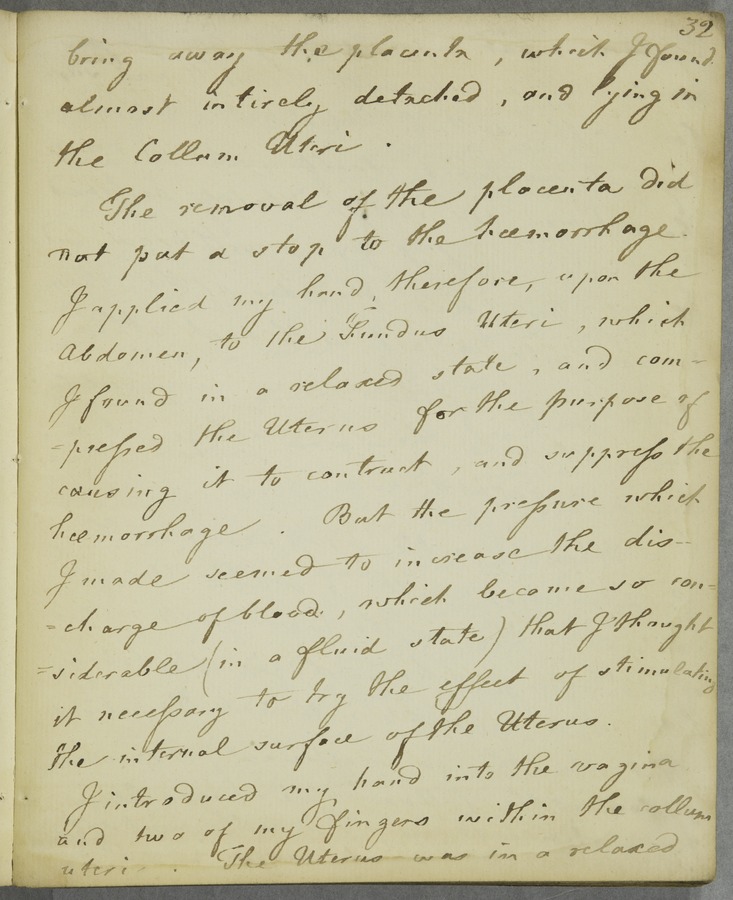 32
bring away the placenta, which I found
almost intirely detached, and lying in
the Collum Uteri.
The removal of the placenta did
not put a stop to the hæmorrhage.
I applied my hand, therefore, upon the
Abdomen, to the Fundus Uteri, which
I found in a relaxed state, and com-
=pressed the Uterus for the purpose of
causing it to contract, and suppress the
hæmorrhage. But the pressure which
I made seemed to increase the dis-
=charge of blood, which became so con-
=siderable (in a fluid state) that I thought
it necessary to try the effect of stimulating
the internal surface of the Uterus.
I introduced my hand into the vagina
and two of my fingers within the collum
uteri. The Uterus was in a relaxed